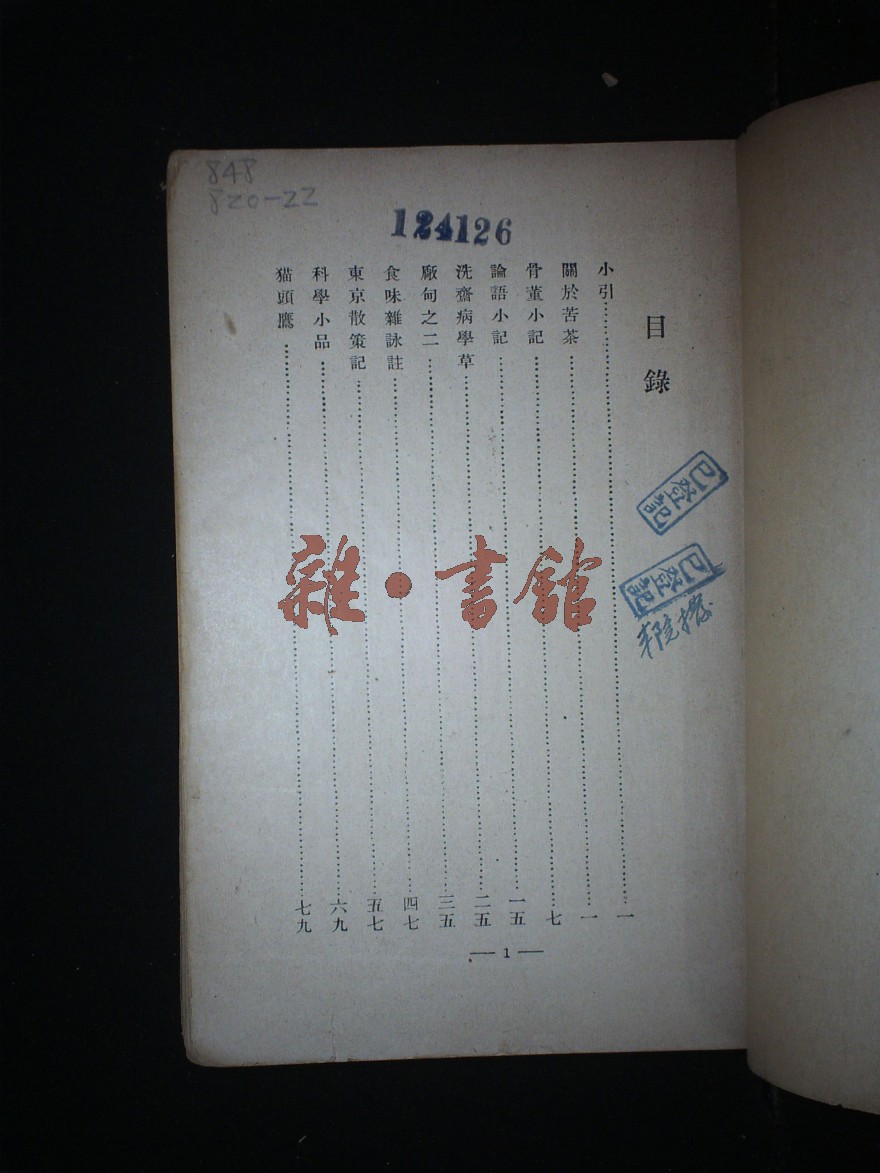 848
820-22
124126
目錄
小引……一
關於苦茶……一
骨董小記……七
論語小記……一五
洗齋病學草……二五
廠甸之二……三五
食味雜詠註……四七
東京散策記……五七
科學小品……六九
猫頭鷹……七九
— 1 —
已登記
已登記
雜·書館